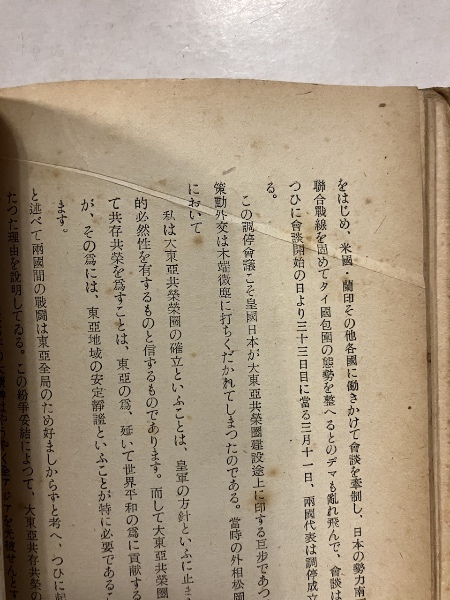 をはじめ、米國・蘭印その他各國に働きかけて會談を牽制し、日本の勢力南
聯合戰線を固めてタイ國包圍の態勢を整へるとのデマも亂れ飛んで、會談は
つひに會談開始の日より三十三日目に當る三月十一日、兩國代表は調停成立
る。
この調停會議こそ皇國日本が大東亞共榮圈建設途上に印する巨歩であつ
策動外交は木端微塵に打ちくだかれてしまつたのである。當時の外相松岡
において
私は大東亞共榮圈の確立といふことは、皇軍の方針といふに止ま
的必然性を有するものと信ずるものであります。而して大東亞共榮圈
て共存共榮を爲すことは、東亞の爲、延いて世界平和の爲に貢獻する
が、その爲には、東亞地域の安定靜謐といふことが特に必要である
ます。
と述べて兩國間の戰鬪は東亞全局のため好ましからずと考へ、つひに起
たつた理由を説明してゐる。この紛爭妥結によつて、大東亞共存共榮の